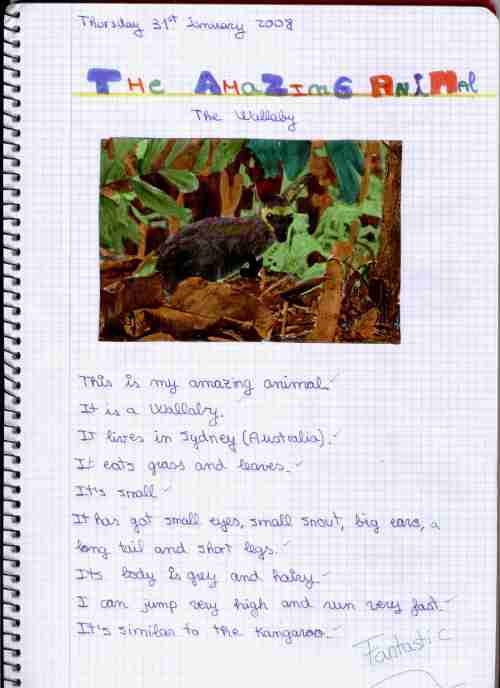 Thursday 31st January 2008
THe AMaZInG ANiMAl
The Wallaby
This is my amazing animal.
It is a Wallaby.
It lives in Sydney (Australia).
It eats grass and leaves.
It's small
It has got small eyes, small snout, big ears, a
long tail and short legs.
Its body is grey and hairy
I can jump very high and run very fast
It's similar to the Kangaroo.
Fantastic